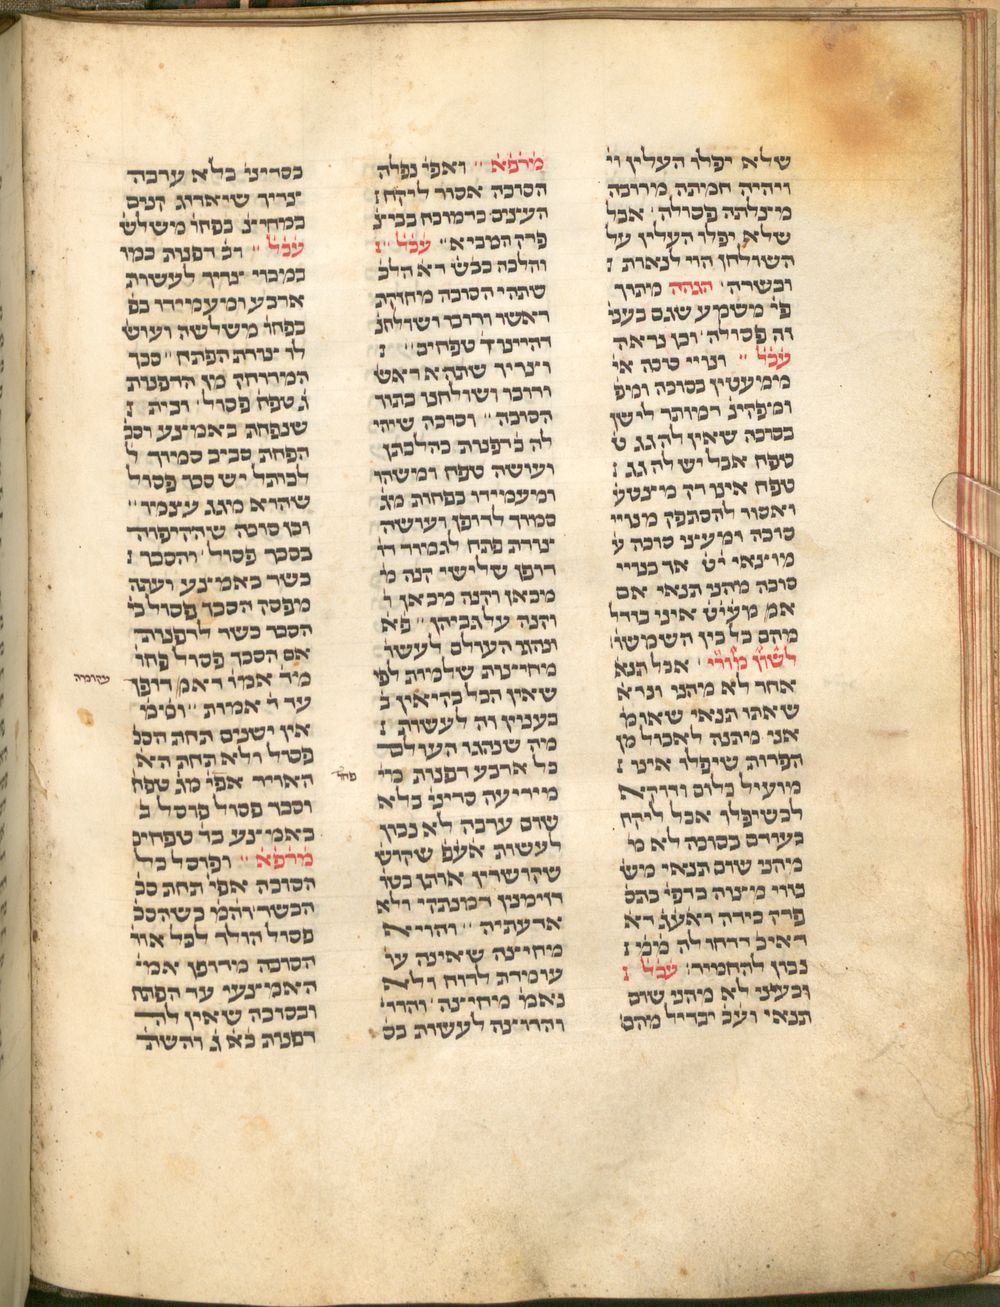 שלא יפלו העלין וי
ויהיה חמיתה מרובה
מצלתה פסולה׳ אבל
שלא יפלו העלין על
השולחן הוי לנאות ז
ובשרה׳ הגהה מתוך
פי׳ משמע שגם בעני
זה פסולה׳ וכן נראה
עכל׳ ״ ונויי סוכה אי
ממעטין בסוכה ומיפ
ומצדיה דמותר לישן
בסוכה שאין להגג ט
טפח אבל יש לה גג ז
טפח אינו רק מצטע
ואסור להסתפק מנויי
סוכה ומעצי סוכה ע
מוצאי י׳ט׳ אך בנויי
סוכה מהני תנאי אם
אמ׳ מע׳י׳ט׳ איני בודל
מהם כל בין השמשו׳
לשון מורי׳ ׳ אבל תנא
אחר לא מהני ונר׳א
שאתו תנאי שאומ׳
אני מתנה לאכול מן
הפרות שיפלו אינו ז
מועיל כלום ודוקא
לכשיפלו אבל ליקח
בעודם בסוכה לא מ
מהני שום תנאי מש
נויי מצוה כדפי׳ בתס
פרק כירה ואע״ג דא
דאיכ׳ דדחו לה ממ׳ ז
נכון להחמיר׳ עכל׳ ז
ובעצי לא מהני שום
תנאי ועכ׳ יבדיל מהם
מרפא״ ואפי׳ נפלה
הסוכה אסור ליקח ז
העצים כדמוכח בביצ
פרק המביא״ עכל׳ ״ז
והלכה כבש׳ דא הלכ
שתהי הסוכה מחזקת
ראשו ורובו ושולחנ
דהיינו ז׳ טפחים״ ז
וצריך שתהא ראשו
ורובו ושולחנו בתוך
הסוכה״ וסוכה שיהי
לה ב׳ דפנות כהלכתן
ועושה טפח ומשהו
ומעמידו בפחות מג׳
סמוך לדופן ועושה
צורת פתח לגמור דו
דופן שלישי קנה מ
מכאן וקנה מכאן ו
וקנה על גביהן״ פ׳א
ונהגו העולם לעשו׳
מחיצות שלמות לפי
שאין הכל בקיאין ב
בענין זה לעשות ז
מה שנהגו העולם
כל ארבע דפנות מי
מיריעה סדיני׳ בלא
שום ערבה לא נכון
לעשות אע׳פ׳ שקוש
שקושרין אותו בטו
דזימנין דמנתקי ולא
אדעתיה״ והויא
מחיצה שאינה עו
עומדת לרוח ולא
נאמ׳ מחיצה׳ והרו׳
והרוצה לעשות בס
בסדיני׳ בלא ערבה
צריך שיארוג קנים
במחיצ׳ בפחו׳ משלש׳
עכל׳ ״ וב׳ דפנות כמו
במבוי צריך לעשות
ארבע ומעמידו בפ
בפחו׳ משלשה ועוש׳
לו צורת הפתח״ סכך
המרוחק מן הדפנות
ג׳ טפח׳ פסול׳ ובית ז
שנפחת באמצע וסכ
הפחת סביב סמוך ל
לכותל יש סכך פסול
שהוא מגג עצמו״
וכן סוכה שהקיפוה
בסכך פסול׳ והסכך ז
כשר באמצע ועתה
מפסק הסכך פסול בי
הסכך כשר לדפנות
אם הסכך פסול פחו׳
מד׳ אמו׳ ר׳אמ׳ דופן
עקומה
עד ד׳ אמות״ ומ׳מ׳
אין ישנים תחת הסכ
פסול ולא תחת הא
האויר אפי׳ מג׳ טפח׳
פחו׳
וסכך פסול פוסל ב
באמצע בד׳ טפחים
מרפא״ ופוסל כל
הסוכה אפי׳ תחת סכ
הכשר והמ׳ כשהסכ׳
פסול הולך לכל אור
הסוכה מדופן אמ׳
האמצעי עד הפתח
ובסוכה שאין לה
דפנות כ׳א ג׳ והשת׳